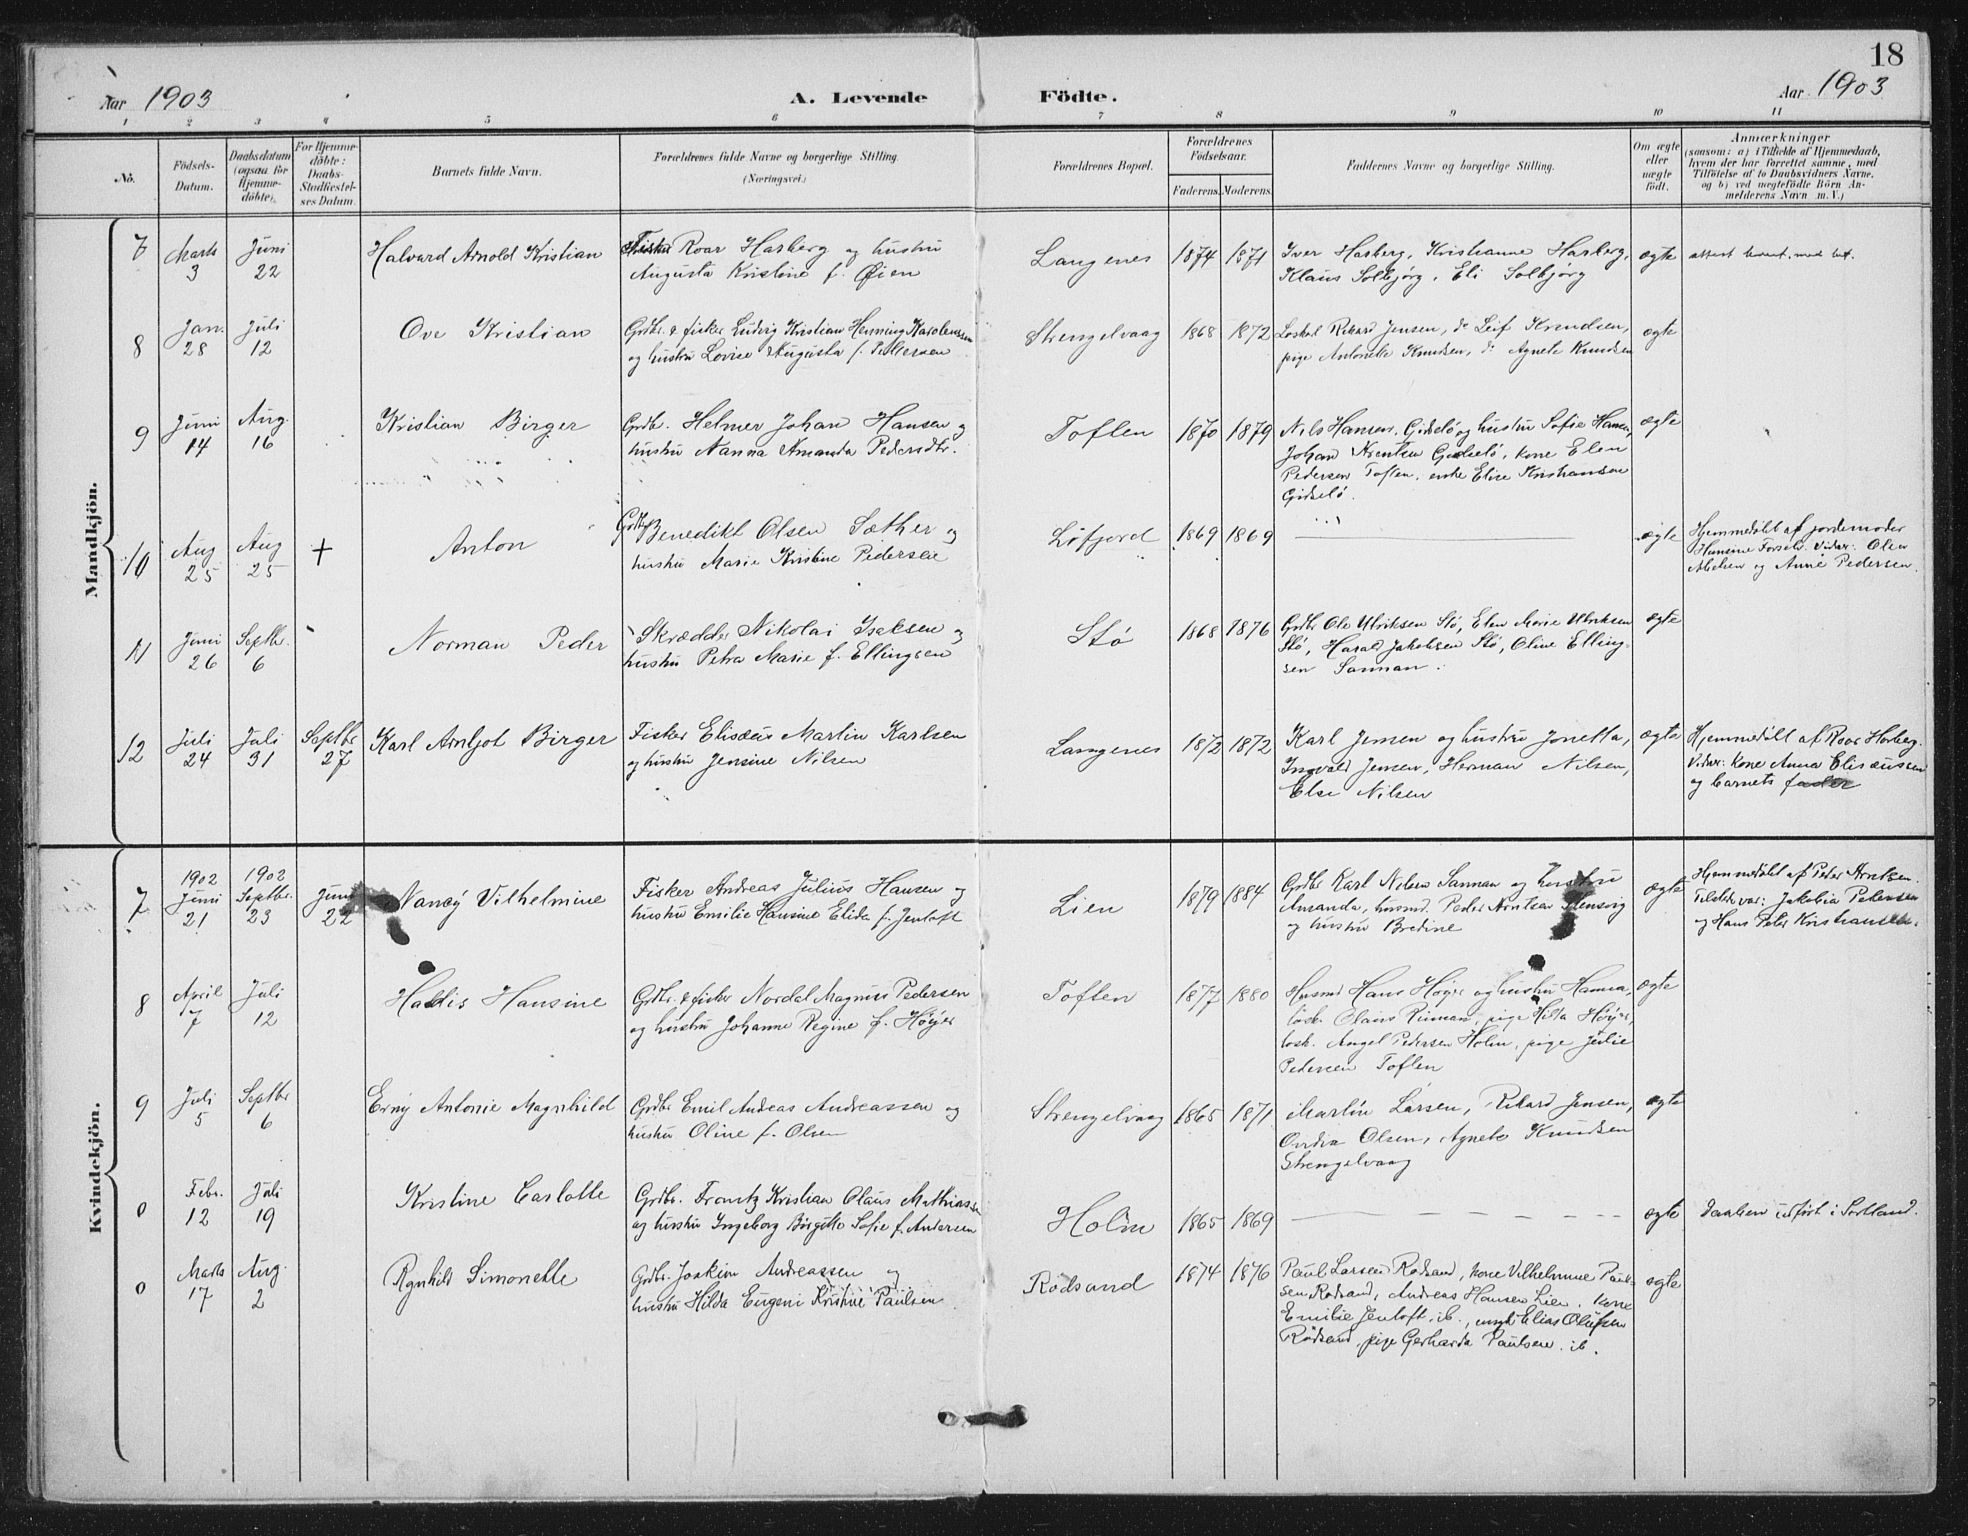 18
Aar 1903
A. Levende Födte.
Aar 1903
1 2 3 4 5 6 7 8 9 10 11
No.
Födsels-Datum.
Daabsdatum (ogsaa for Hjemme-döbte).
For Hjemme-döbte: Daabs-Stadfæstel-ses Datum.
Barnets fulde Navn.
Forældrenes fulde Navne og borgerlige Stilling.
(Næringsvei.)
Forældrenes Bopæl.
Forældrenes Födselsaar.
Faderens. Moderens.
Faddernes Navne og borgerlige Stilling.
Om ægte eller uægte født.
Anmærkninger
(saasom: a) i Tilfælde af Hjemmedaab,
hvem der har forrettet samme, med
Tilföielse af to Daabsvidners Navne,
og b) ved uægtefödte Börn An-
melderens Navn m. V.)
Mandkjön.
7 Marts 3 Juni 22 Halvard Arnold Kristian Fisker Roar Hasberg og hustru
Augusta Kristine f. Øien
Langenes 1874 1871 Iver Hasberg, Kristianne Hasberg,
Klaus Solbjørg, Eli Solbjørg
ægte attest
8 Jan. 28 Juli 12 Ove Kristian Grdbr. & fisker Ludvig Kristian Henning Karolinssen
og hustru Lovise Augusta f. Pettersen
Strengelvaag 1868 1872 Løskal Rikard Jensen, do Leif Knudsen,
pige Antonette Knudsen, do Agnete Knudsen
ægte
9 Juni 14 Aug. 16 Kristian Birger Grdbr. Helmer Johan Hansen og
hustru Nanna Amanda Pedersdtr.
Toften 1870 1879 Nils Hansen, Gidslö og hustru Sofie Hansen,
Johan Arentsen Gidslö, kone Elen
Pedersen Toften, enke Elise Kristiansen
Gidslö.
ægte
10 Aug 25 Aug 25 + Anton Grdbr Benedikt Olsen Sæther og
hustru Marie Kristine Pedersen
Löfjord 1869 1869 ægte Hjemmedøbt af jordemoder
Hansine Vidner: Olea
og Anne Pedersen.
11 Juni 26 Septbr. 6 Norman Peder Skrædder Nikolai Isaksen og
hustru Petra Marie f. Ellingsen
Stø 1868 1876 Grdbr Ole Ulriksen Stø, Elen Marie Ulriksen
Stø, Harald Jakobsen Stø, Oline Elling-
sen Sannan.
ægte
12 Juli 24 Juli 31 Septbr 27 Karl Arntjot Birger Fisker Elisæus Martin Karlsen
og hustru Jensine Nilsen
Langenes 1872 1872 Karl Jensen og hustru Jonetta,
Ingvald Jensen, Herman Nilsen,
Else Nilsen
ægte Hjemmedöbt af Roar Hasberg.
Vidner: kone Anna Elisæussen
og barnets fader
Kvindekjön.
7 1902 Juni 21 1902 Septbr. 23 Juni 22 Nancy Vilhelmine Fisker Andreas Julius Hansen og
hustru Emilie Hansine Elida f. Jentoft
Lien 1879 1884 Grdbr Karl Nilsen Sannan og hustru
Amanda, husmd. Peder Arntsen
og hustru Bredine
ægte Hjemmedöbt af Peter Arntsen.
Tilstede var: Jakobia Petersen
og Hans Peter Kristiansen.
8 April 7 Juli 12 Haldis Hansine Grdbr. & fisker Nordal Magnus Pedersen
og hustru Johanne Regine f. Höyer
Toften 1877 1880 Husmd Hans Höyer og hustru Hanna,
lösk. Olaus Riiman, pige Hilda Höyer,
lösk. Angel Pedersen Holm, pige Julie
Pedersen Toften
ægte
9 Juli 5 Septbr 6 Erny Antonie Magnhild Grdbr Emil Andreas Andreassen og
hustru Oline f. Olsen
Strengelvaag 1865 1871 Martin Larsen, Rikard Jensen,
Ovidia Olsen, Agnete Knudsen
Strengelvaag
ægte
0 Febr. 12 Juli 19 Kristine Carlotte Grdbr. Frantz Kristian Olaus Mathiassen
og hustru Ingeborg Birgitte Sofie f. Andersen
Holm 1865 1869 ægte Daaben udført i Sortland.
0 Marts 17 Aug. 2 Rgnhild Simonette Grdbr. Joakim Andreassen og
hustru Hilda Eugeni Kristine Paulsen
Rödsand 1874 1876 Paul Larsen Rödsand, kone Vilhelmine Paul-
sen Rödsand, Andreas Hansen Lien, kone
Emilie Jentoft, ib., ungk Elias Olufsen
Rödsand, pige Gerharda Paulsen ib.
ægte